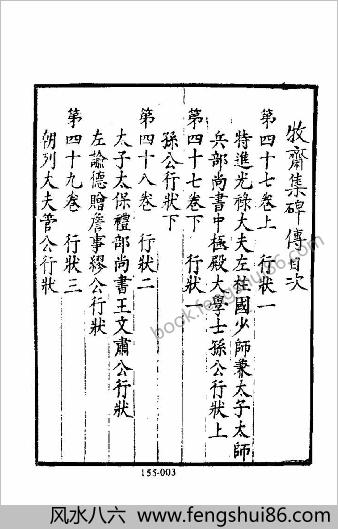 牧齋集碑傳目次
第四十七卷上 行狀一
特進光祿大夫左柱國少師兼太子太師
兵部尚書中極殿大學士孫公行狀上
第四十七卷下 行狀一
孫公行狀下
第四十八卷 行狀二
太子太保禮部尚書王文肅公行狀
左諭德贈詹事繆公行狀
第四十九卷 行狀三
朝列大夫管公行狀
book.fengshui86.com
155-003
风水八六 - fengshui86.com